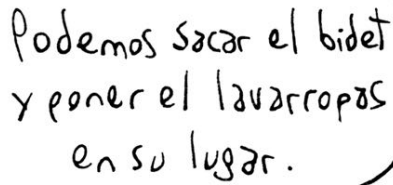 Podemos sacar el bidet
y poner el lavarropas
en su lugar.